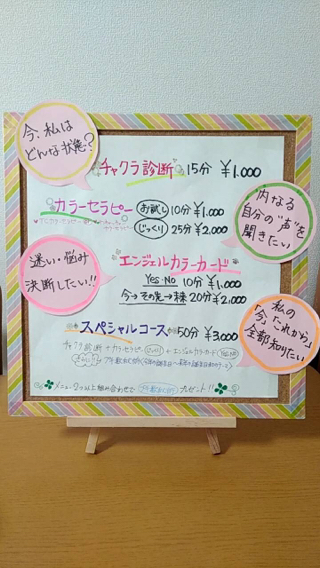 今、私は
どんな状態?
チャクラ診断 15分 ¥1,000
カラーセラピー お試し 10分 ¥1,000
じっくり 25分 ¥2,000
内なる
自分の"声"を
聞きたい
迷い・悩み
決断したい!!
エンジェルカラーカード
Yes・No 10分 ¥1,000
今→その先→ 20分 ¥2,000
私の
「今」「これから」
全部知りたい
スペシャルコース 50分 ¥3,000
チャクラ診断 + カラーセラピー じっくり + エンジェルカラーカード
メニュー2つ以上組み合わせで プレゼント!!